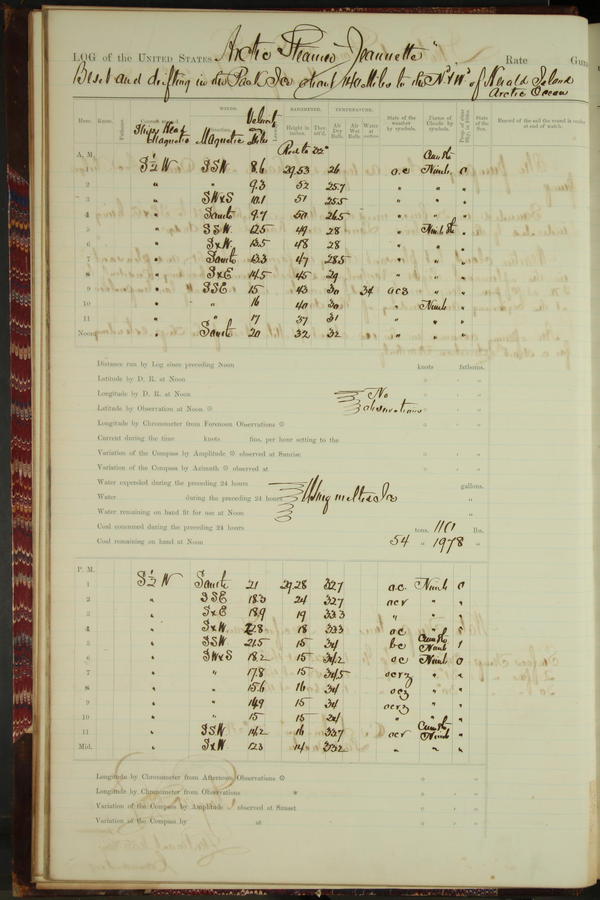 LOG of the UNITED STATES Arctic Steamer "Jeannette" Rate Guns
Beset and drifting in the Pack Ice about 140 Miles to the N'd & W'd of Herald Island
Arctic Ocean
Hour. Knots. Fathoms. WINDS. BAROMETER. TEMPERATURE.
Ship's Head Magnetic Magnetic Velocity in Miles
Height in inches. Ther. att'd. Air Dry Bulb. Air Wet Bulb. Water at surface. State of the weather by symbols. Forms of Clouds by symbols. State of the Sea. Record of the sail the vessel is under at end of watch.
A. M. Red. to 32° Cum St
S ½ W SSW 8.6 29.53 26 oc Nimb 0
2 " " 9.3 52 25.7 " " "
3 " SW x S 10.1 51 25.5 " " "
4 " South 9.7 50 26.5 " " "
5 " SSW 12.5 49 28 " Nimb St "
6 " S x W 13.5 48 28 " " "
7 " South 13.3 47 28.5 " " "
8 " S x E 14.5 45 29 " " "
9 " SSE 15 43 30 34 ocs " "
10 " " 16 40 30 " Nimb "
11 " " 17 37 31 " " "
Noon " South 20 32 32 " " "
Distance run by Log since preceding Noon knots fathoms.
Latitude by D. R. at Noon
Longitude by D. R. at Noon No
Latitude by Observation at Noon observations
Longitude by Chronometer from Forenoon Observations
Current during the time knots fms. per hour setting to the
Variation of the Compass by Amplitude observed at Sunrise
Variation of the Compass by Azimuth observed at
Water expended during the preceding 24 hours gallons.
Water during the preceding 24 hours Using melted Ice "
Water remaining on hand fit for use at Noon "
Coal consumed during the preceding 24 hours tons. lbs.
Coal remaining on hand at Noon 54 " 1978 "
P. M.
1 S ½ W South 21 29.28 32.7 oc Nimb 0
2 " SSE 18.3 24 32.7 ocr " "
3 " S x E 18.9 19 33.3 " " "
4 " S x W 22.8 18 33.3 oc " "
5 " SSW 21.5 15 34 bc Cum St Nimb 1
6 " SW x S 18.2 15 34.2 oc Nimb 0
7 " " 17.8 15 34.5 ocrz " "
8 " " 15.6 16 34 ocz " "
9 " " 14.9 15 34 ocrz " "
10 " " 15 15 34 " " "
11 " SSW 14.2 16 33.7 ocr Cum St Nimb "
Mid. " S x W 12.3 14 33.2 " " "
Longitude by Chronometer from Afternoon Observations
Longitude by Chronometer from Observations
Variation of the Compass by Amplitude observed at Sunset
Variation of the Compass by at